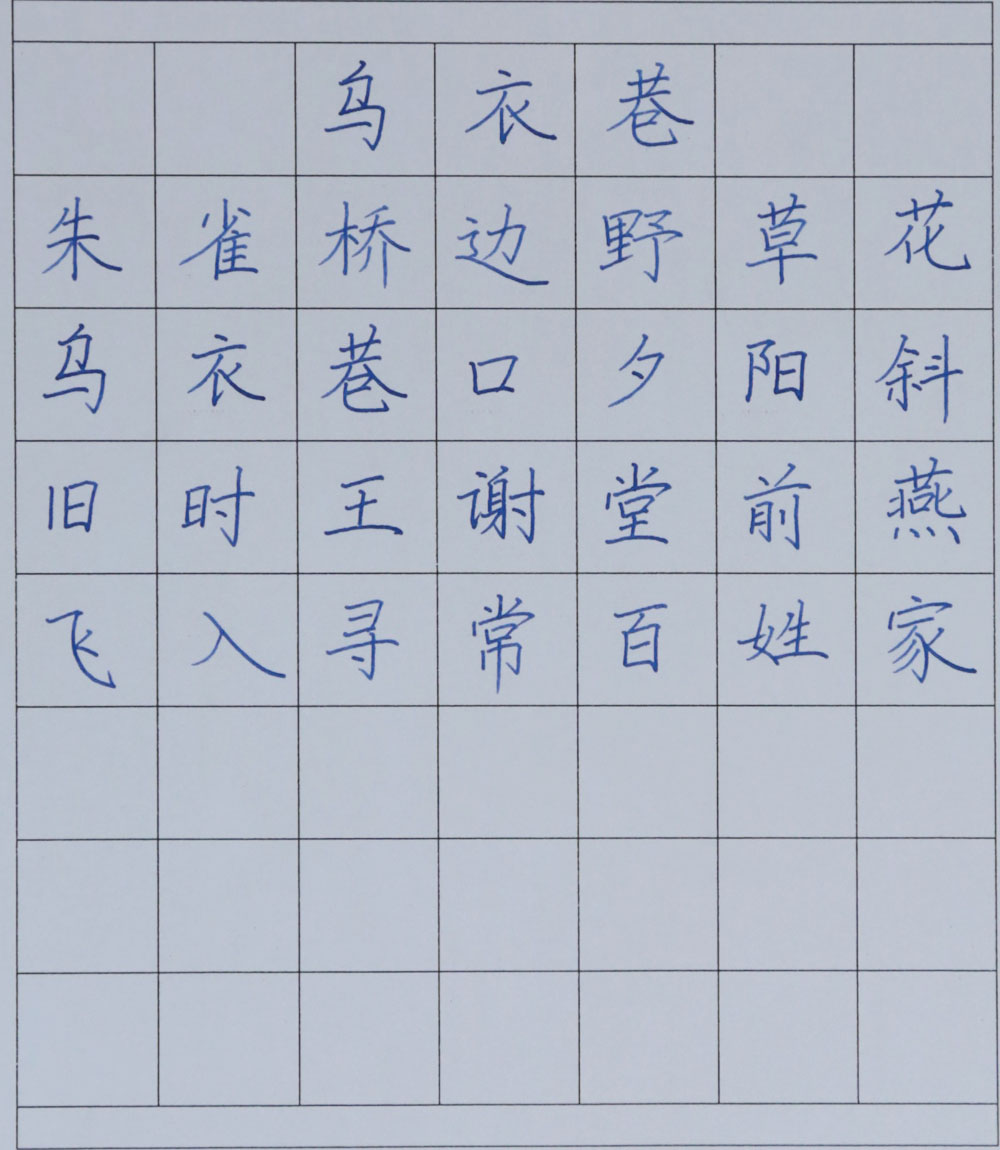 乌衣巷
朱雀桥边野草花
乌衣巷口夕阳斜
旧时王谢堂前燕
飞入寻常百姓家